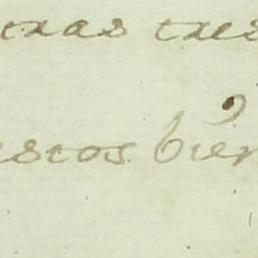 tras tres
estos bien